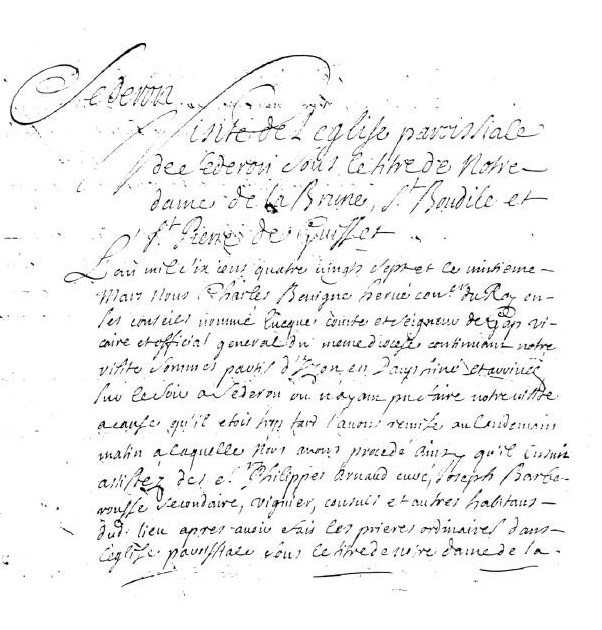 Sederon
Visite de L'eglise paroissiale
de Sederon sous le titre de Notre
dame de la Brune, St. Baudile et
St. Pierre de Guisset
L'an mil six cens quatre vingt sept et le huitieme
Mars Nous Charles Benigne hervé conr. du Roy en
ses conseils nommé Evecque comte et seigneur de Gap vi
caire et official general du meme diocese continuant notre
visite sommes partis d'Izon en Dauphiné et arrivés
sur le soir a Sederon ou n'ayant pu faire notre visite
a cause qu'il etoit trop tard l'avons remise au lendemain
matin a laquelle Nous avons procedé ainsy qu'il ensuit
assistez des Philippes Arnaud curé, Joseph Barba
rousse secondaire, viguier, consuls et autres habitans
dud. lieu apres avoir fait les prieres ordinaires dans
l'eglise paroissiale sous le titre de notre dame de la